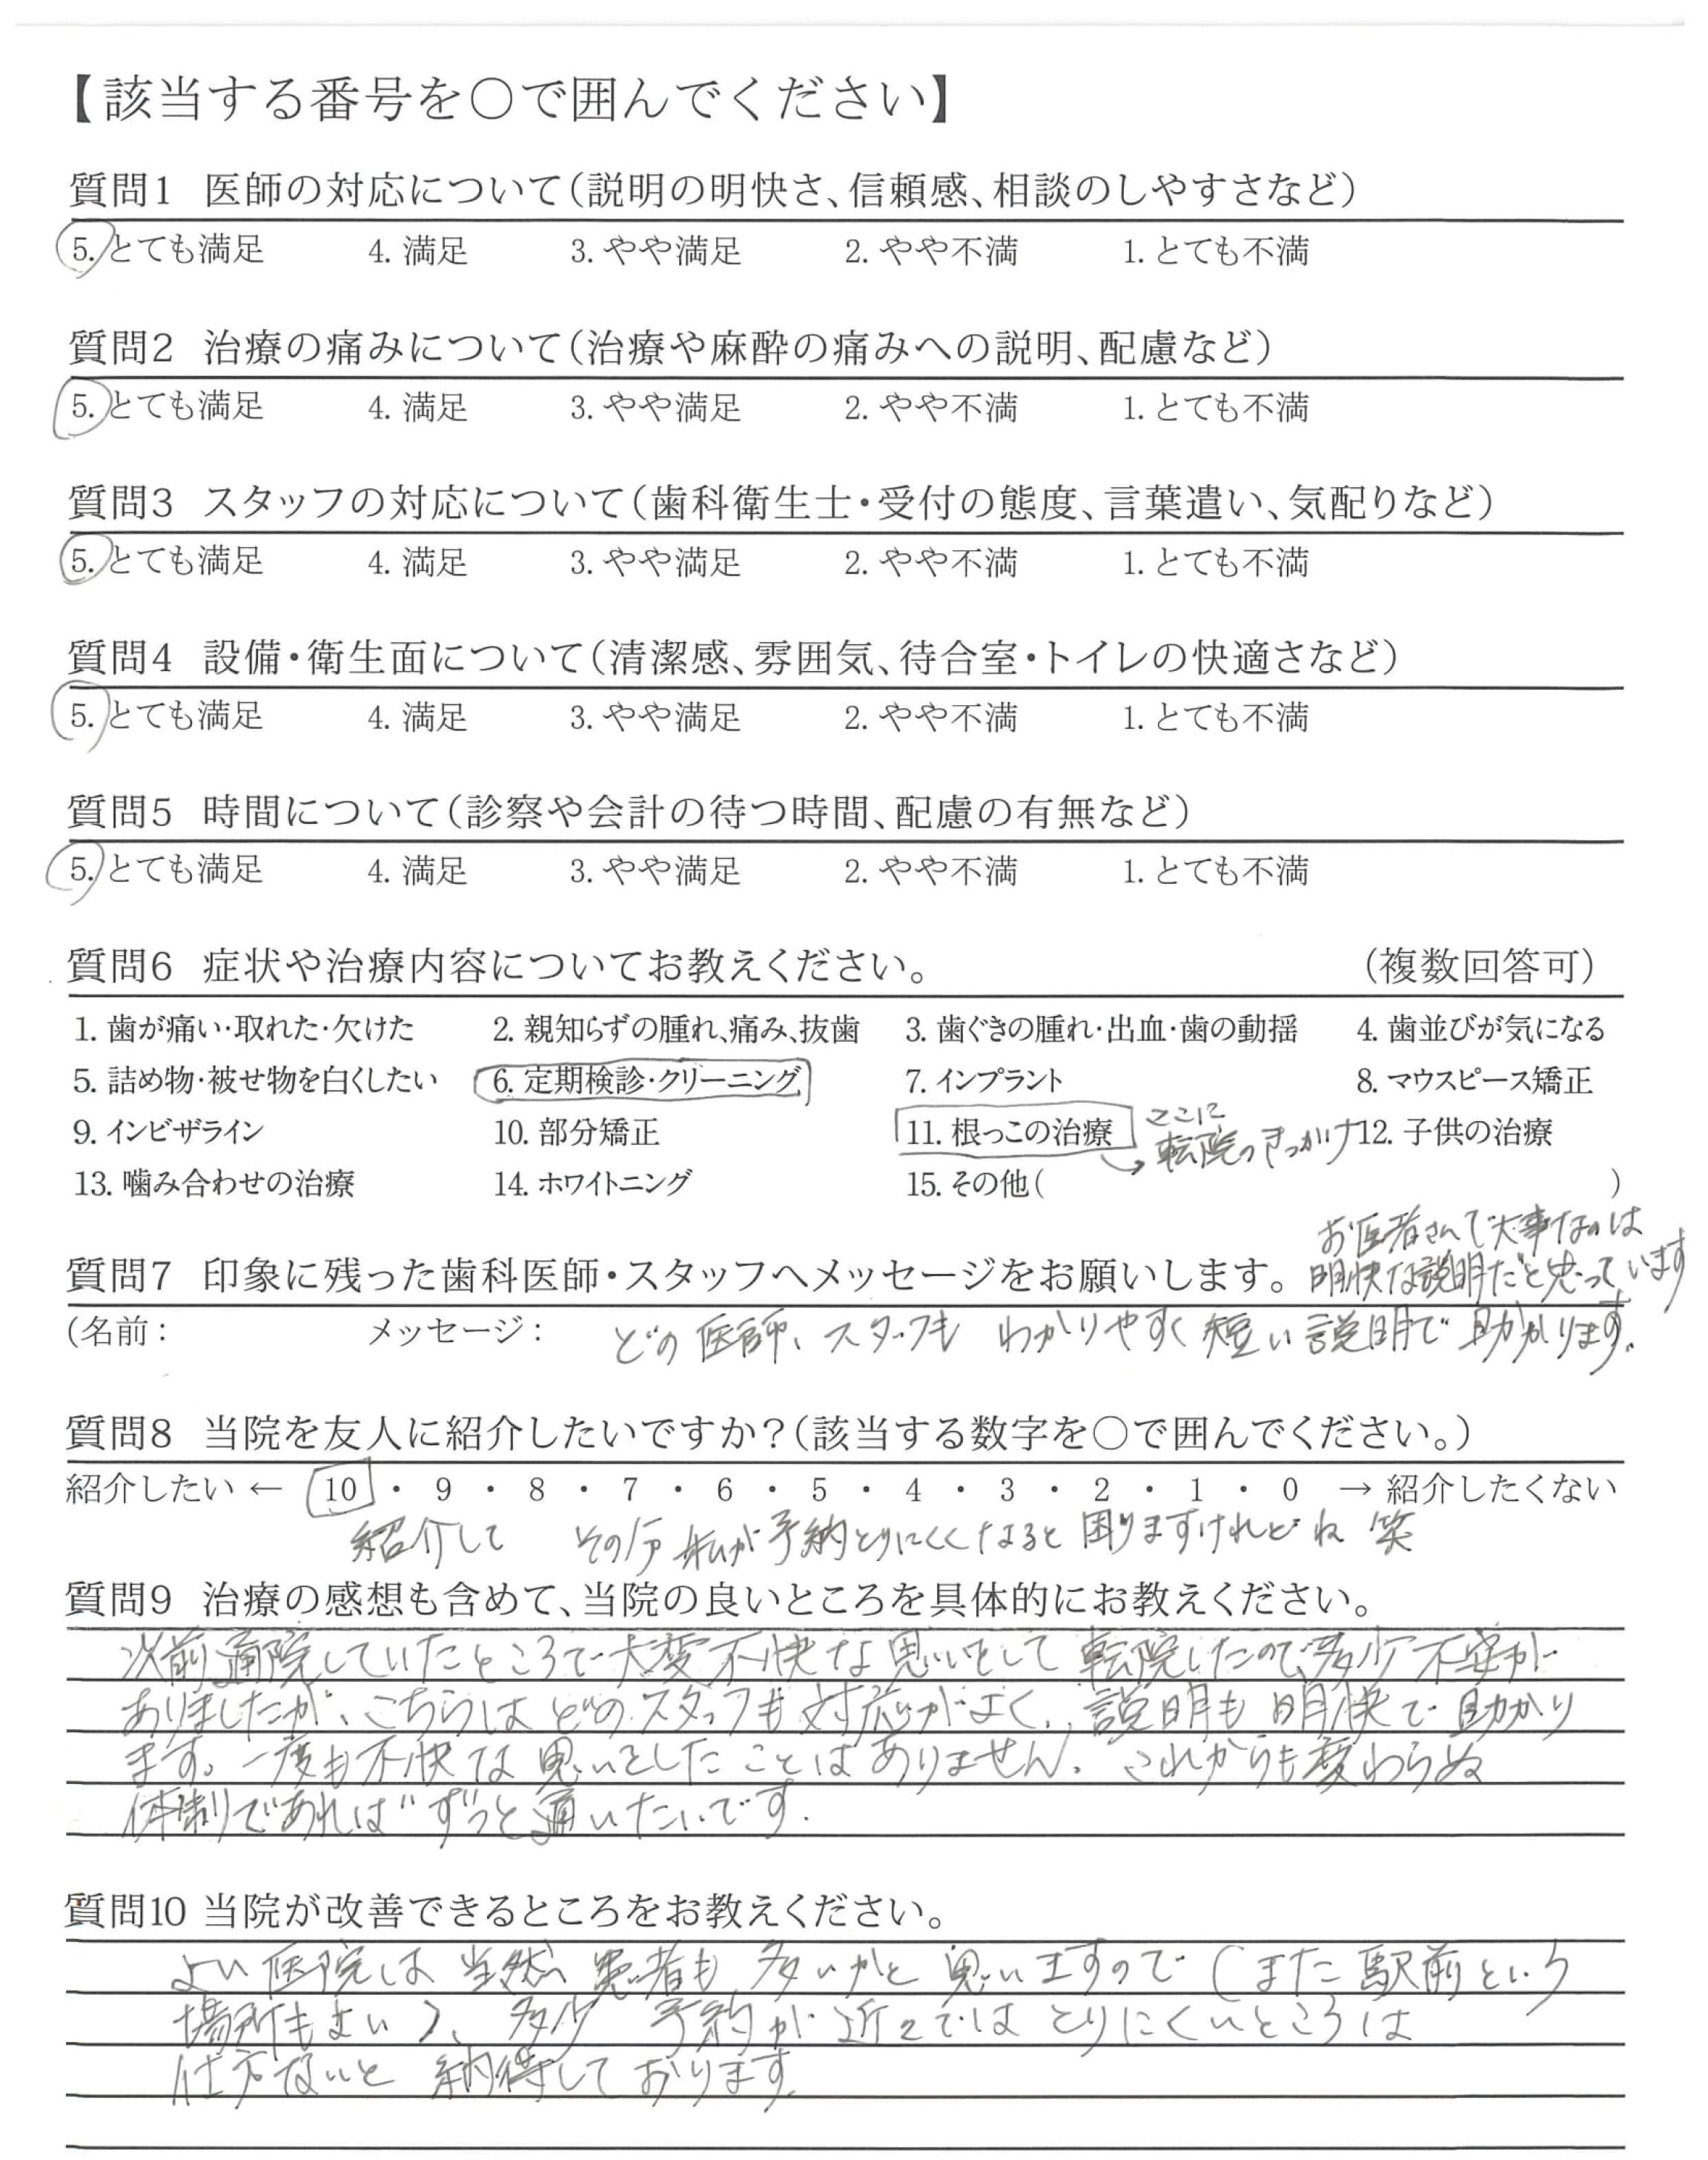 【該当する番号を○で囲んでください】
質問1 医師の対応について(説明の明快さ、信頼感、相談のしやすさなど)
5. とても満足 4. 満足 3. やや満足 2. やや不満 1. とても不満
質問2 治療の痛みについて(治療や麻酔の痛みへの説明、配慮など)
5. とても満足 4. 満足 3. やや満足 2. やや不満 1. とても不満
質問3 スタッフの対応について(歯科衛生士・受付の態度、言葉遣い、気配りなど)
5. とても満足 4. 満足 3. やや満足 2. やや不満 1. とても不満
質問4 設備・衛生面について(清潔感、雰囲気、待合室・トイレの快適さなど)
5. とても満足 4. 満足 3. やや満足 2. やや不満 1. とても不満
質問5 時間について(診察や会計の待つ時間、配慮の有無など)
5. とても満足 4. 満足 3. やや満足 2. やや不満 1. とても不満
質問6 症状や治療内容についてお教えください。 (複数回答可)
1. 歯が痛い・取れた・欠けた 2. 親知らずの腫れ、痛み、抜歯 3. 歯ぐきの腫れ・出血・歯の動揺 4. 歯並びが気になる
5. 詰め物・被せ物を白くしたい 6. 定期検診・クリーニング 7. インプラント 8. マウスピース矯正
9. インビザライン 10. 部分矯正 11. 根っこの治療 12. 子供の治療
ここに
→転院のきっかけ
13. 噛み合わせの治療 14. ホワイトニング 15. その他( )
お医者さんで大事なのは
質問7 印象に残った歯科医師・スタッフへメッセージをお願いします。 明快な説明だと思っています
(名前: メッセージ: どの医師、スタッフも わかりやすく 短い 説明で 助かります。
質問8 当院を友人に紹介したいですか?(該当する数字を○で囲んでください。)
紹介したい ← 10 ・ 9 ・ 8 ・ 7 ・ 6 ・ 5 ・ 4 ・ 3 ・ 2 ・ 1 ・ 0 → 紹介したくない
紹介して その分 私が 予約とりにくくなると 困りますけれどね 笑
質問9 治療の感想も含めて、当院の良いところを具体的にお教えください。
以前通院していたところで大変不快な思いをして 転院したので、多少不安が
ありましたが、こちらは どのスタッフも 対応がよく、説明も 明快で 助かり
ます。一度も不快な 思いをしたことはありません。これからも変わらぬ
体制であれば ずっと通いたいです。
質問10 当院が改善できるところをお教えください。
よい医院は 当然 患者も 多いかと 思いますので (また 駅前という
場所もよい)、多少 予約が 近々では とりにくいところは
仕方ないと 納得して おります。